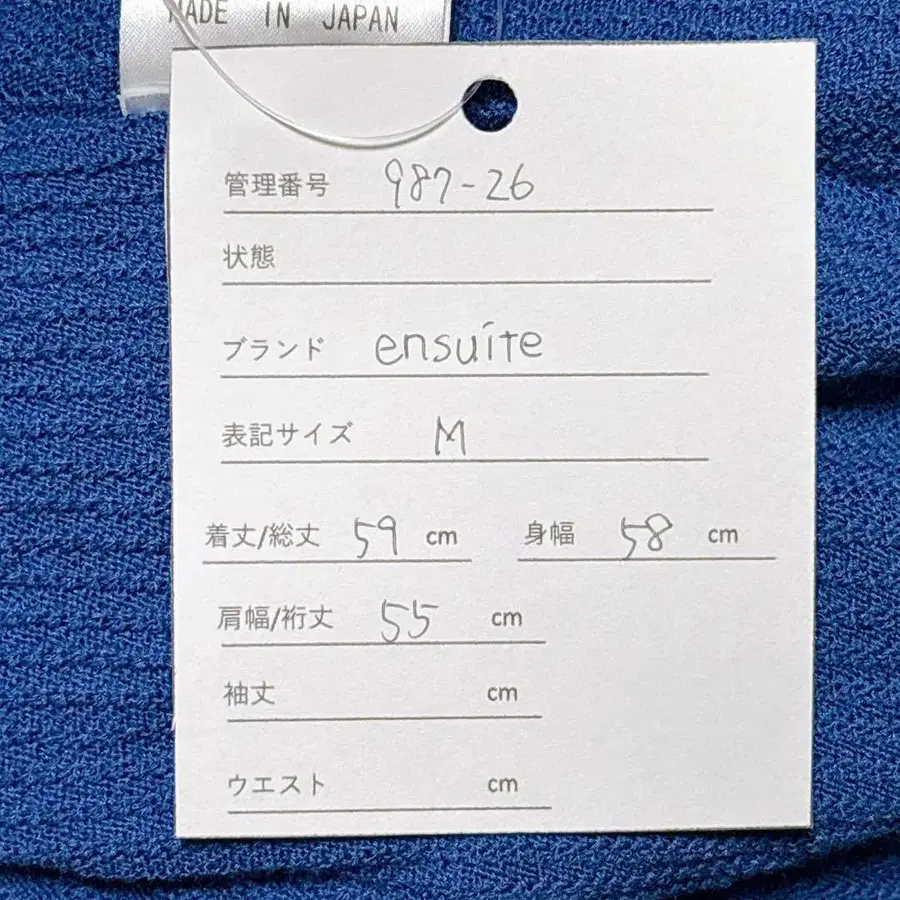 MADE IN JAPAN
管理番号 987-26
状態
ブランド ensuite
表記サイズ M
着丈/総丈 59 cm 身幅 58 cm
肩幅/裄丈 55 cm
袖丈 cm
ウエスト cm